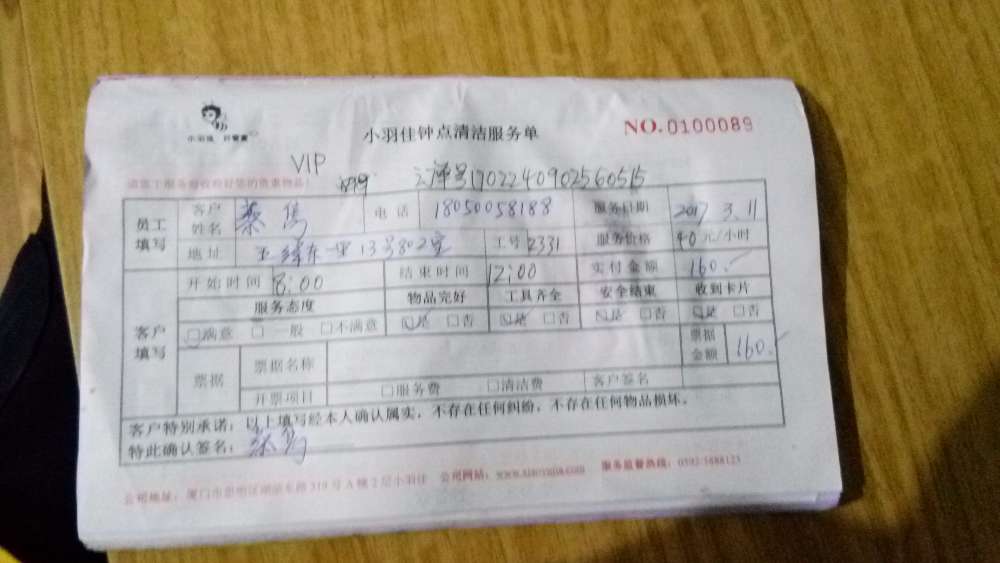 小羽佳 好管家
小羽佳钟点清洁服务单
NO.0100089
VIP
云泽号170224090256055
员工填写 客户姓名 蔡 电话 18050058188 服务日期 2017 3.11
地址 东一里13号802室 工号 2331 服务价格 40元/小时
开始时间 8:00 结束时间 12:00 实付金额 160.
客户填写 服务态度 物品完好 工具齐全 安全结束 收到卡片
☑满意 □一般 □不满意 ☑是 □否 ☑是 □否 ☑是 □否 ☑是 □否
票据 票据名称 票据金额 160.
开票项目 □服务费 □清洁费 客户签名
客户特别承诺:以上填写经本人确认属实,不存在任何纠纷,不存在任何物品损坏。
特此确认签名:蔡
公司地址:厦门市思明区湖滨东路319号A幢2层小羽佳 公司网站:www.xiaoyujia.com 服务监督热线:0592-5888123